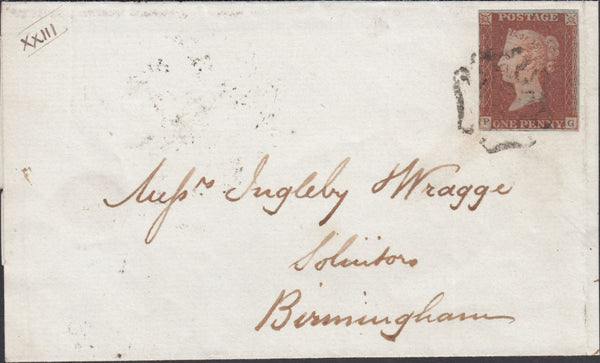 XXIII
POSTAGE
P ONE PENNY G
Messrs Ingleby Wragge
Solicitors
Birmingham